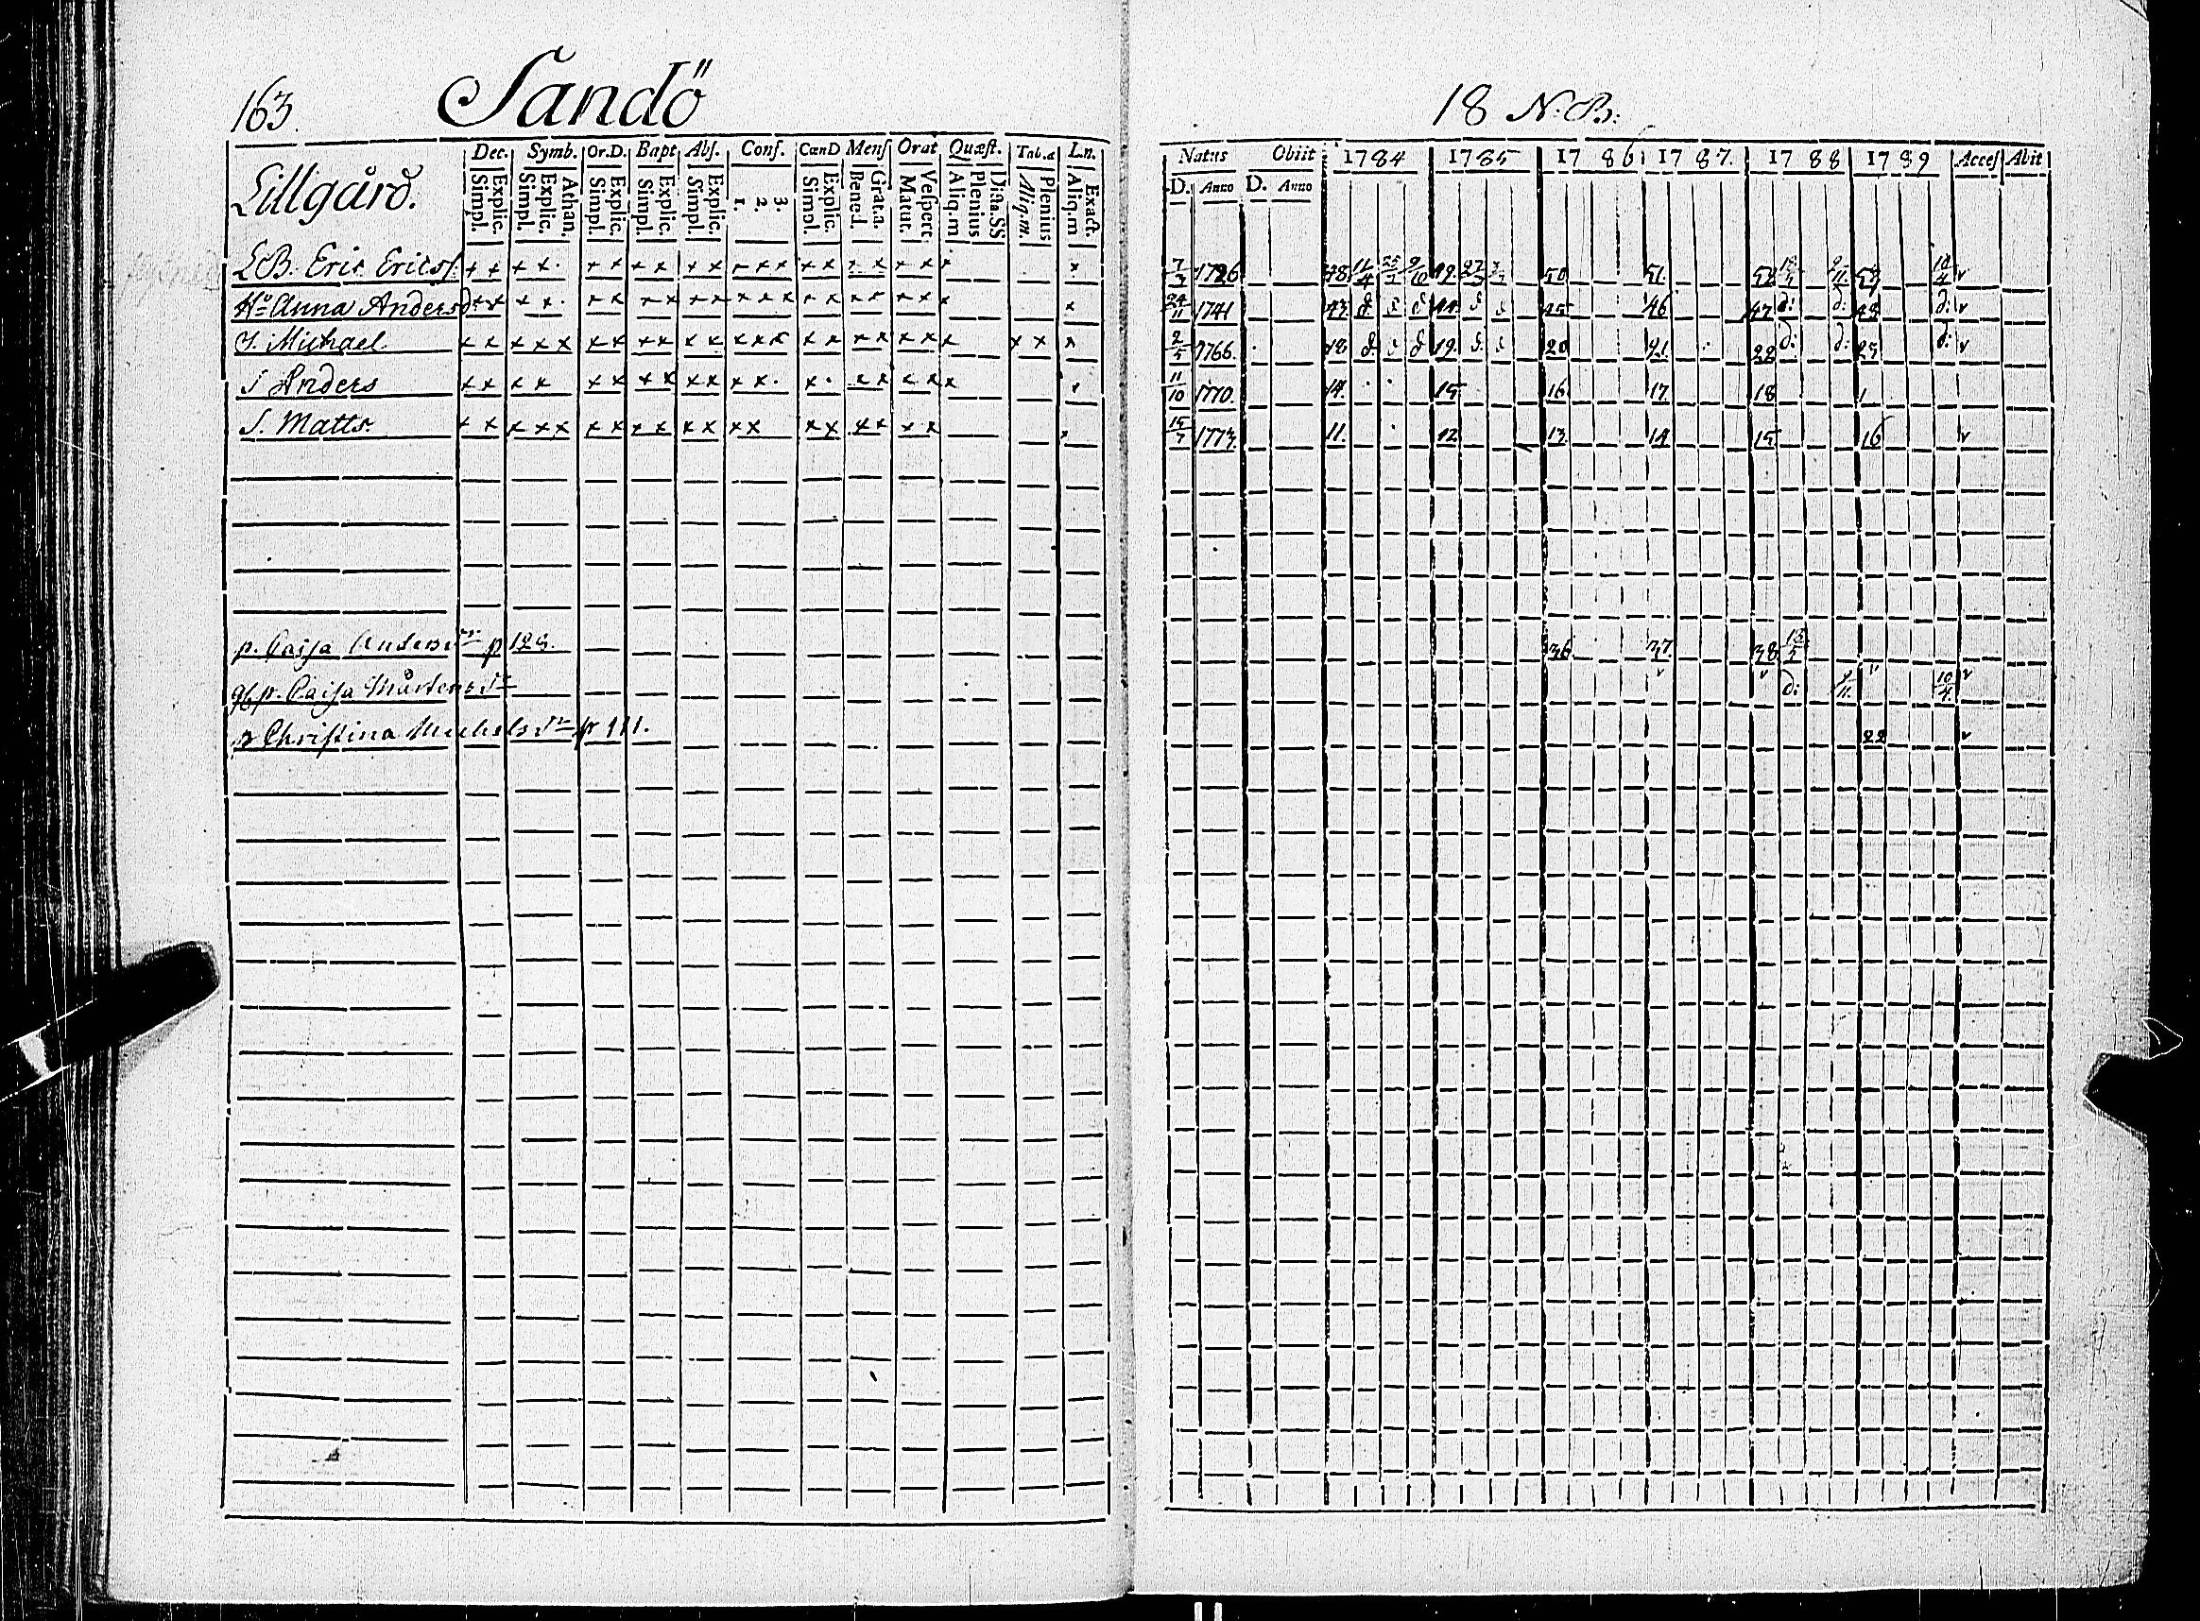 163.
Sandö
18 N.B:
Lillgård.
Dec. Symb. Or.D. Bapt Abs. Conf. CœnD Mens Orat Quæst. Tab.œ L.n.
Simpl. Explic. Simpl. Explic. Athan. Simpl. Explic. Simpl. Explic. Simpl. Explic. 1. 2. 3. Simpl. Explic. Bened. Grat.a. Matut. Vespert Aliq.m Plenius Dicta.SS Aliq.m. Plenius Aliq.m Exact.
Natus Obiit 1784 1785 17 86 17 87. 17 88 1789 Acces Abit
D. Anno D. Anno
Eric Ericss. x x x x x x x x x x x x x x x x x x x 7/3 1726 11/4 50 51. 52 v
Anna Andersd: x x x x x x x x x x x x x x x x x x x x 24/11 1741 43 d d d 44 45 46 47 d: d: 48 d: v
S. Michael x x x x x x x x x x x x x x x x x x x x x x x x 2/5 1766. 18. d d d 19. 20 21. 22 d: d: 23 d: v
S Anders x x x x x x x x x x x x x x x x x x x 11/10 1770. 14. 15 16 17. 18
S. Matts. x x x x x x x x x x x x x x x x x x x 15/7 1773. 11. 12 13. 14 15 16 v
p. Caisa Andersdr p 129. 36. 37. 38
p. Caisa Mårtensdr v v d: 10/4 v
p Christina Michelsdr p 111. 22 v